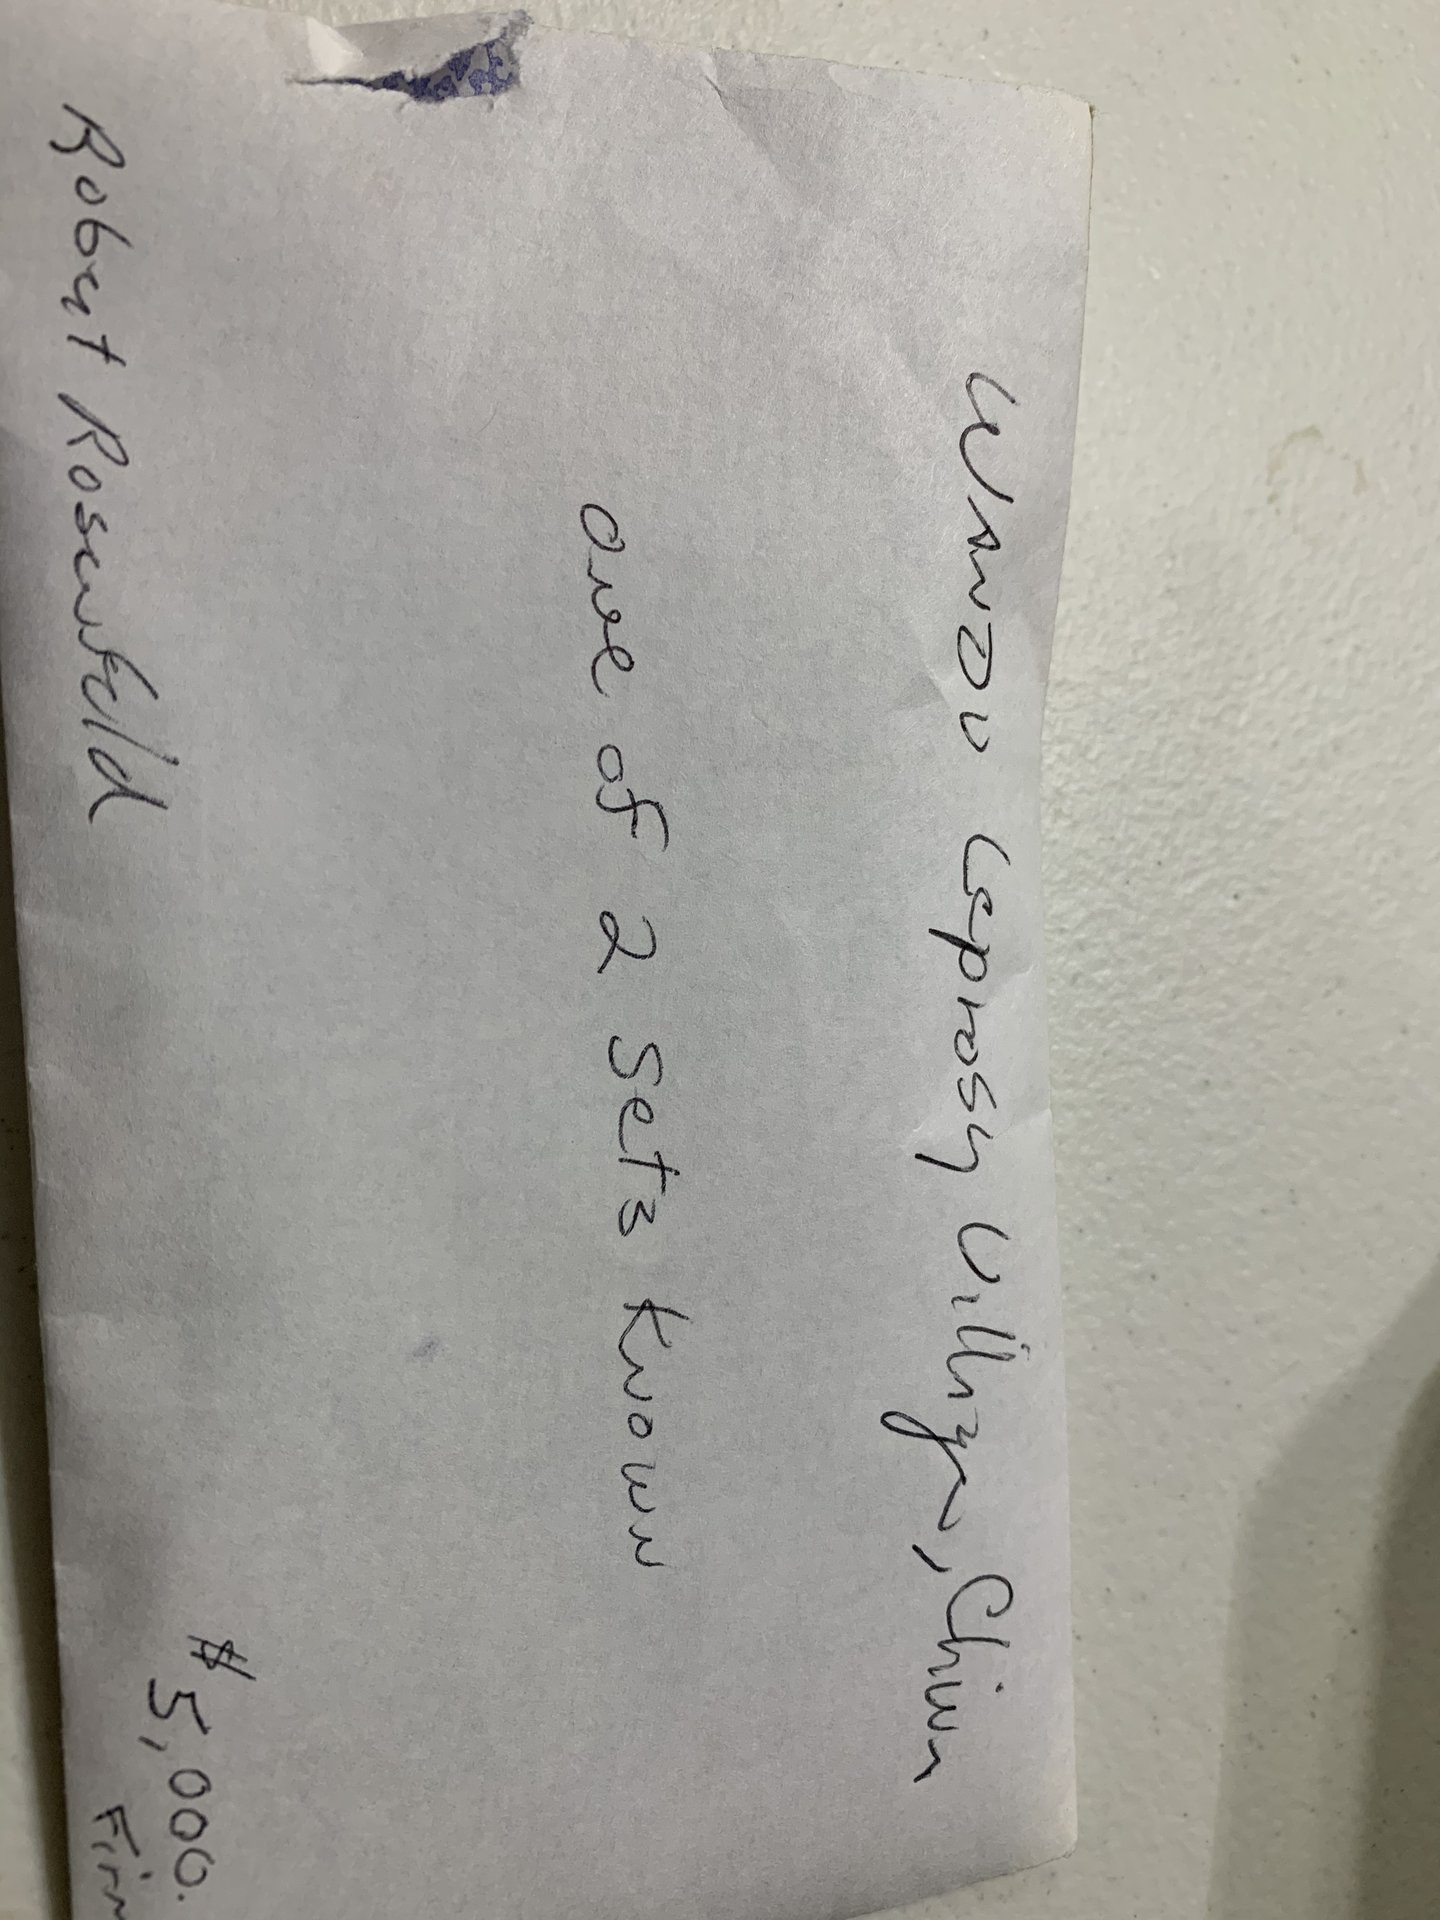 Wanzu Leprosy Village, China
one of 2 Sets known
Robert Rosenfeld
$5,000.
Firm